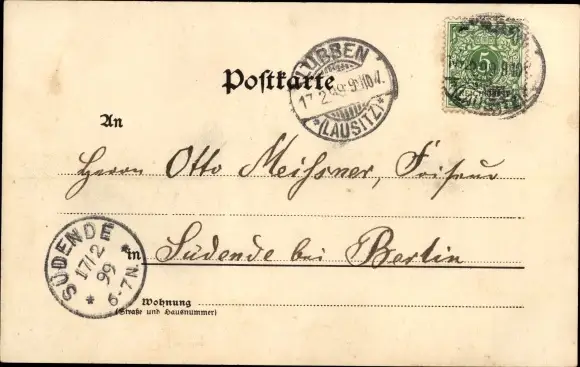 LÜBBEN
17.2.99.9-10V.
*(LAUSITZ)*
5
Postkarte
An
Herrn Otto Meissner, Friseur
in Südende bei Berlin
SÜDENDE
17/2
99
6-7N.
*
Wohnung
(Straße und Hausnummer)